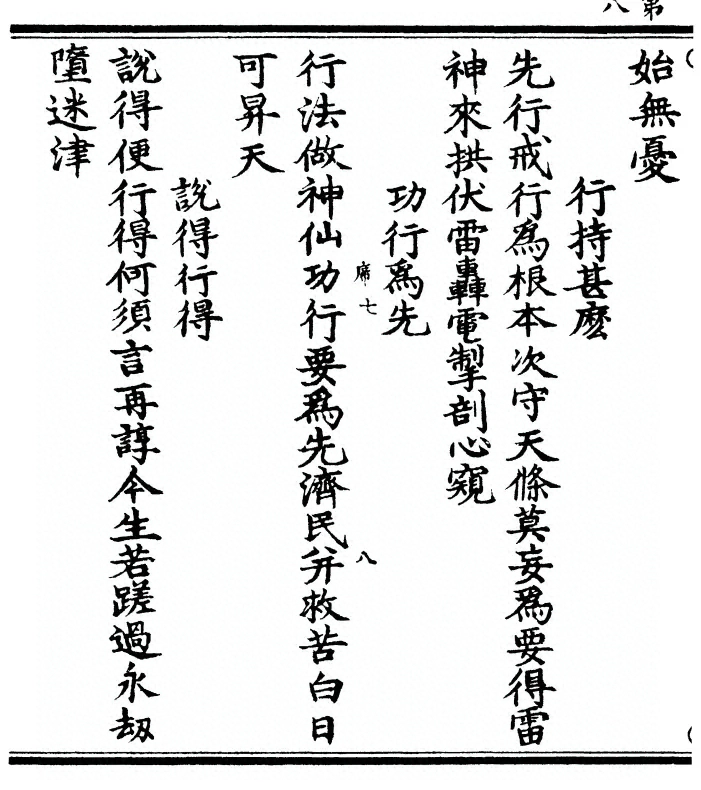 第
八
始無憂
行持甚麽
先行戒行爲根本次守天條莫妄爲要得雷
神來拱伏雷轟電掣剖心窺
功行爲先
席七
八
行法做神仙功行要爲先濟民并救苦白日
可昇天
說得行得
說得便行得何須言再諄今生若蹉過永刼
墮迷津